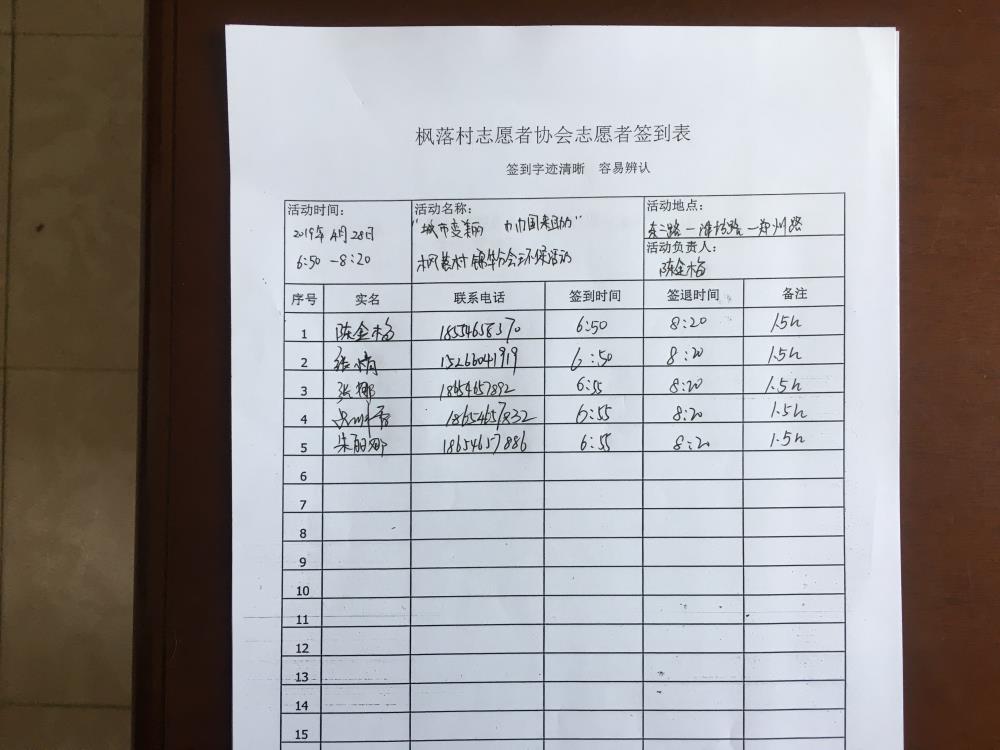 枫落村志愿者协会志愿者签到表
签到字迹清晰 容易辨认
活动时间: 活动名称: 活动地点:
2019年4月28日 "城市变美丽 巾帼来助力" 东二路—潍坊路—郑州路
6:50-8:20 枫落村 分会环保活动
活动负责人:
陈金梅
序号 实名 联系电话 签到时间 签退时间 备注
1 陈金梅 6:50 8:20 1.5h
2 15266041919 6:50 8:20 1.5h
3 张娜 18654657892 6:55 8:20 1.5h
4 18654657832 6:55 8:20 1.5h
5 朱丽娜 18654657886 6:55 8:20 1.5h
6
7
8
9
10
11
12
13
14
15